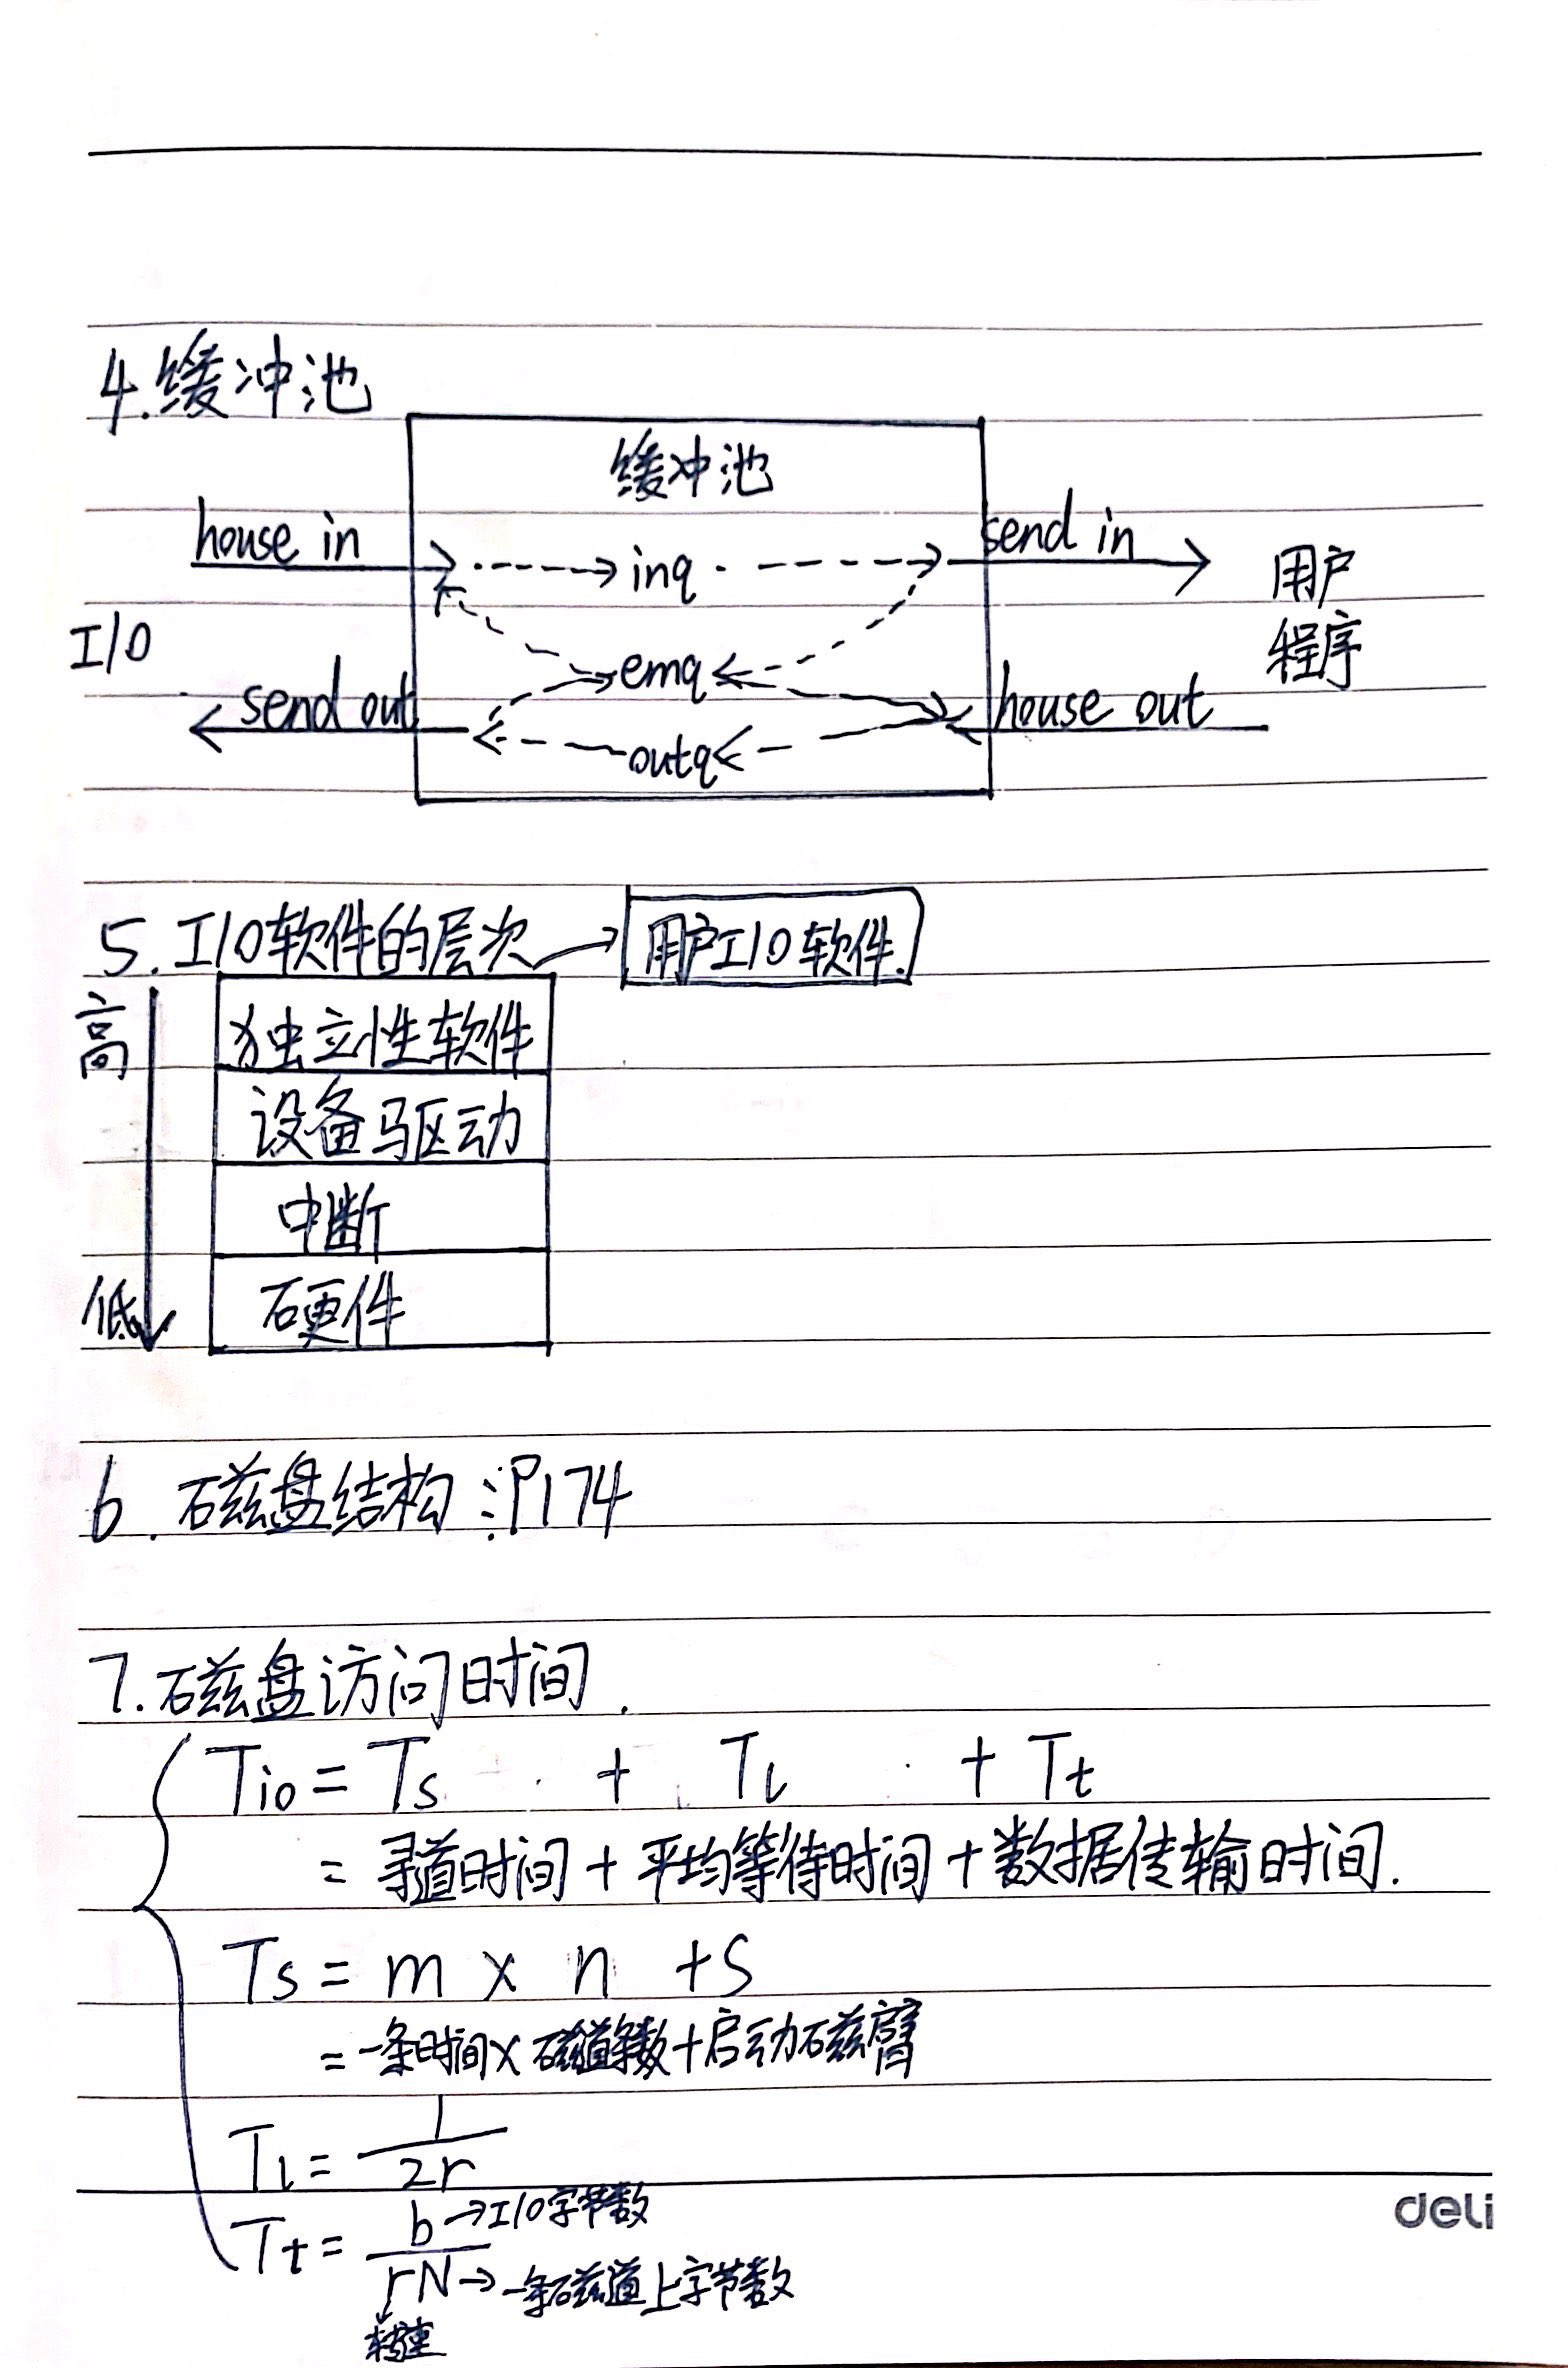 4.缓冲池
缓冲池
house in
send in
inq
用户
程序
I/O
emq
send out
house out
outq
5.I/O软件的层次→用户I/O软件.
高
独立性软件
设备驱动
中断
低
硬件
6.磁盘结构:P174
7.磁盘访问时间.
Tio = Ts + Tl + Tt
= 寻道时间 + 平均等待时间 + 数据传输时间.
Ts = m × n + S
= 一条时间 × 磁道条数 + 启动磁臂
Tl = 1/2r
Tt = b/rN
b→I/O字节数
N→一条磁道上字节数
转速
deli